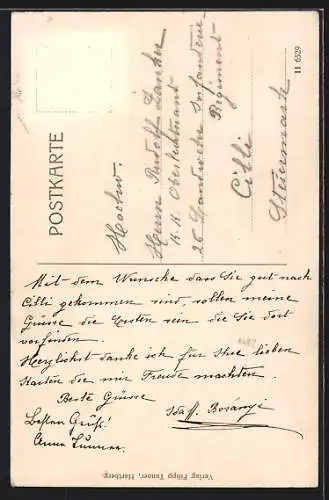 POSTKARTE
Hochw.
Herrn Rudolf
K. K. Oberleutnant
26 Landwehr Infanterie
Regiment
Cilli
Steiermark
11 6529
Mit dem Wunsche dass Sie gut nach
Cilli gekommen sind, sollen meine
Grüsse die Ersten sein die Sie dort
vorfinden.
Herzlichst danke ich für Ihre lieben
Karten die mir Freude machten.
Beste Grüsse
Besten Gruß!
Anna
Verlag Filipp Tanzer, Hartberg.